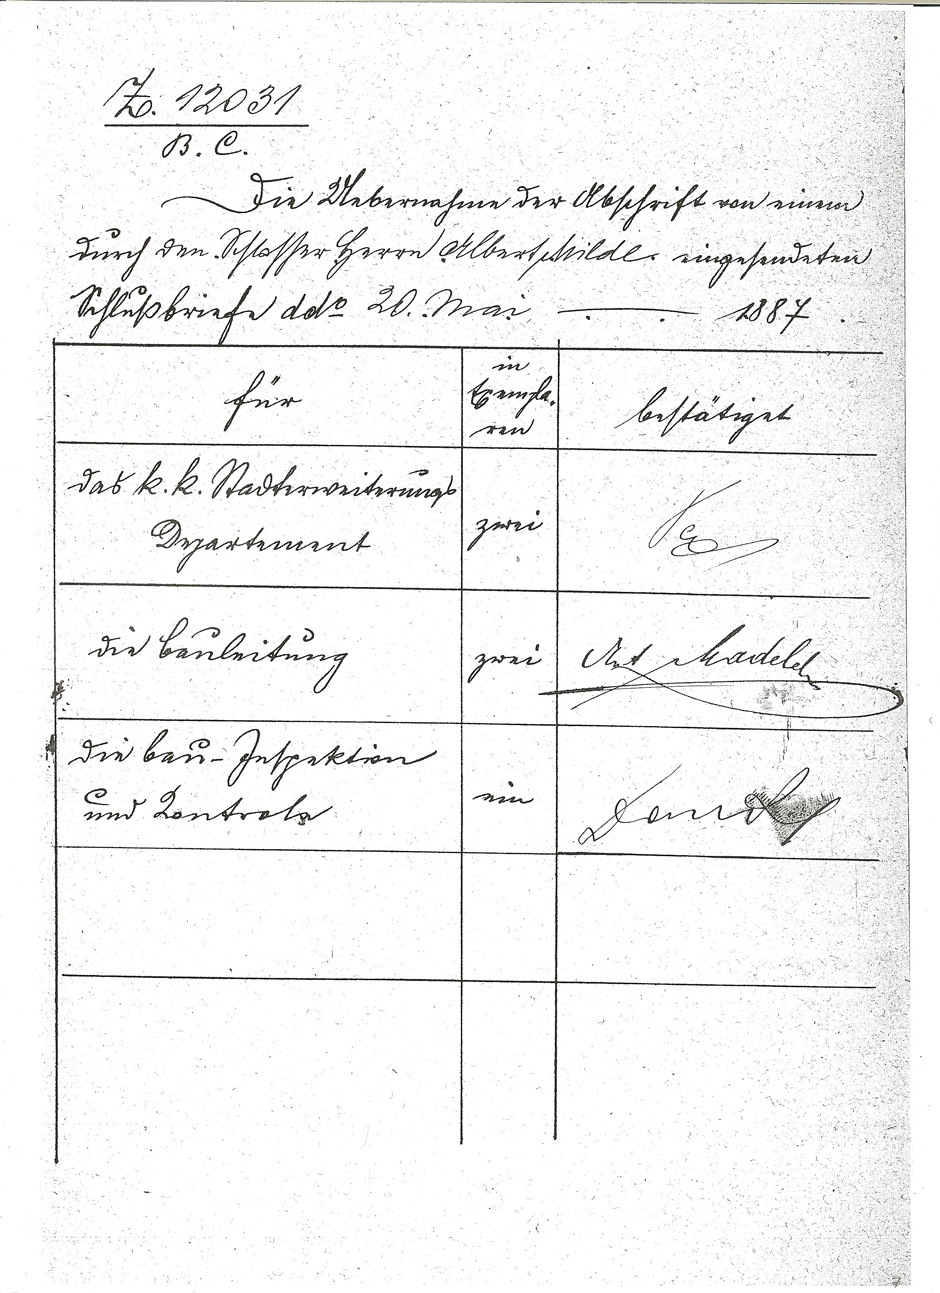 Z. 12031
B. C.
Die Uebernahme der Abschrift von einem
durch den Schlosser Herrn Albert Milde. eingesendeten
Schlußbriefe ddo 20. Mai 1887.
für
in
Exempla-
ren
bestätiget
das k. k. Stadterweiterungs
Departement
zwei
die Bauleitung
zwei
die Bau-Inspektion
und Kontrole
ein